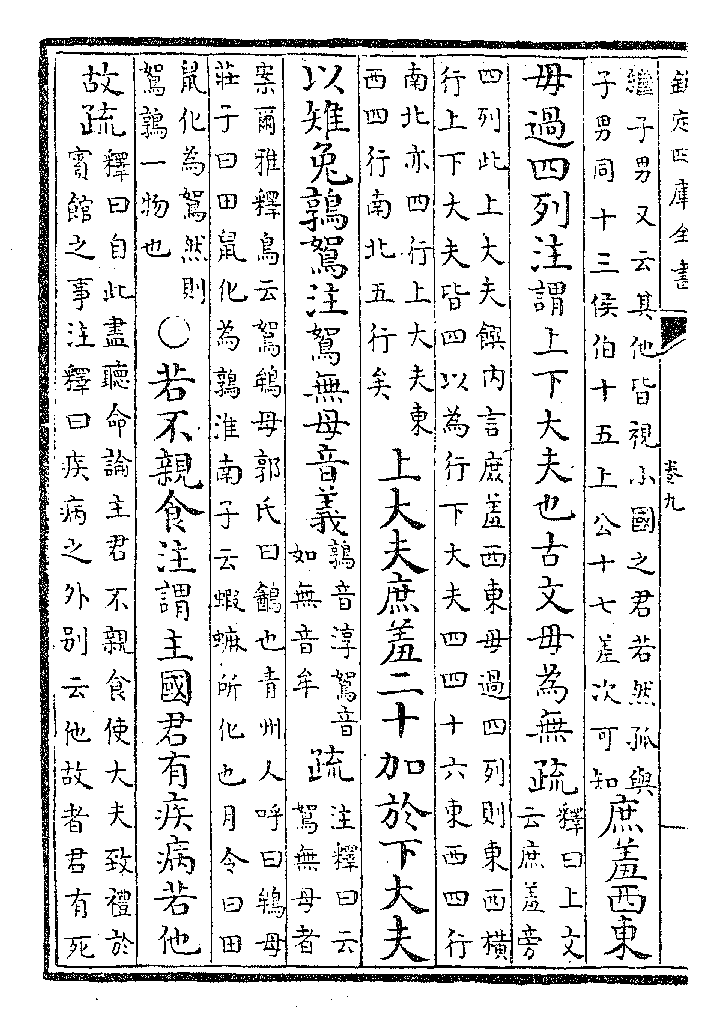 欽定四庫全書
卷九
繼子男又云其他皆視小國之君若然孤與
子男同十三侯伯十五上公十七差次可知
庶羞西東
毋過四列注謂上下大夫也古文毋為無疏
釋曰上文
云庶羞旁
四列此上大夫饌内言庶羞西東毋過四列則東西横
行上下大夫皆四以為行下大夫四四十六東西四行
南北亦四行上大夫東
西四行南北五行矣
上大夫庶羞二十加於下大夫
以雉兔鶉鴽注鴽無母音義
鶉音淳鴽音
如無音牟
疏
注釋曰云
鴽無母者
案爾雅釋鳥云鴽鴾母郭氏曰鷂也青州人呼曰鴾母
莊子曰田鼠化為鶉淮南子云蝦蟆所化也月令曰田
鼠化為鴽然則
鴽鶉一物也
〇若不親食注謂主國君有疾病若他
故疏
釋曰自此盡聽命論主君不親食使大夫致禮於
賓館之事注釋曰疾病之外别云他故者君有死